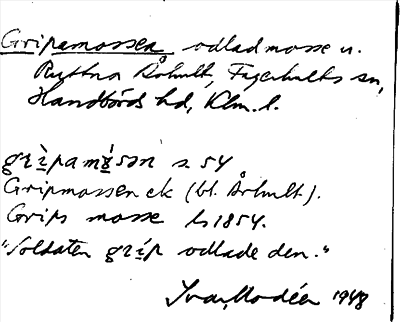 Gripamossen odlad mosse u.
Ryttna Århult, Fagerhults sn,
Handbörds hd, Klm. l.
gri̱pamɷ́sən s 54
Gripmossen ek (bl. Århult).
Grips mosse ls 1854.
"Soldaten gríp odlade den."
Ivar Modéer 1948